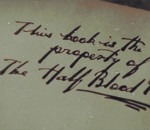 This book is the
property of
The Half Blood P